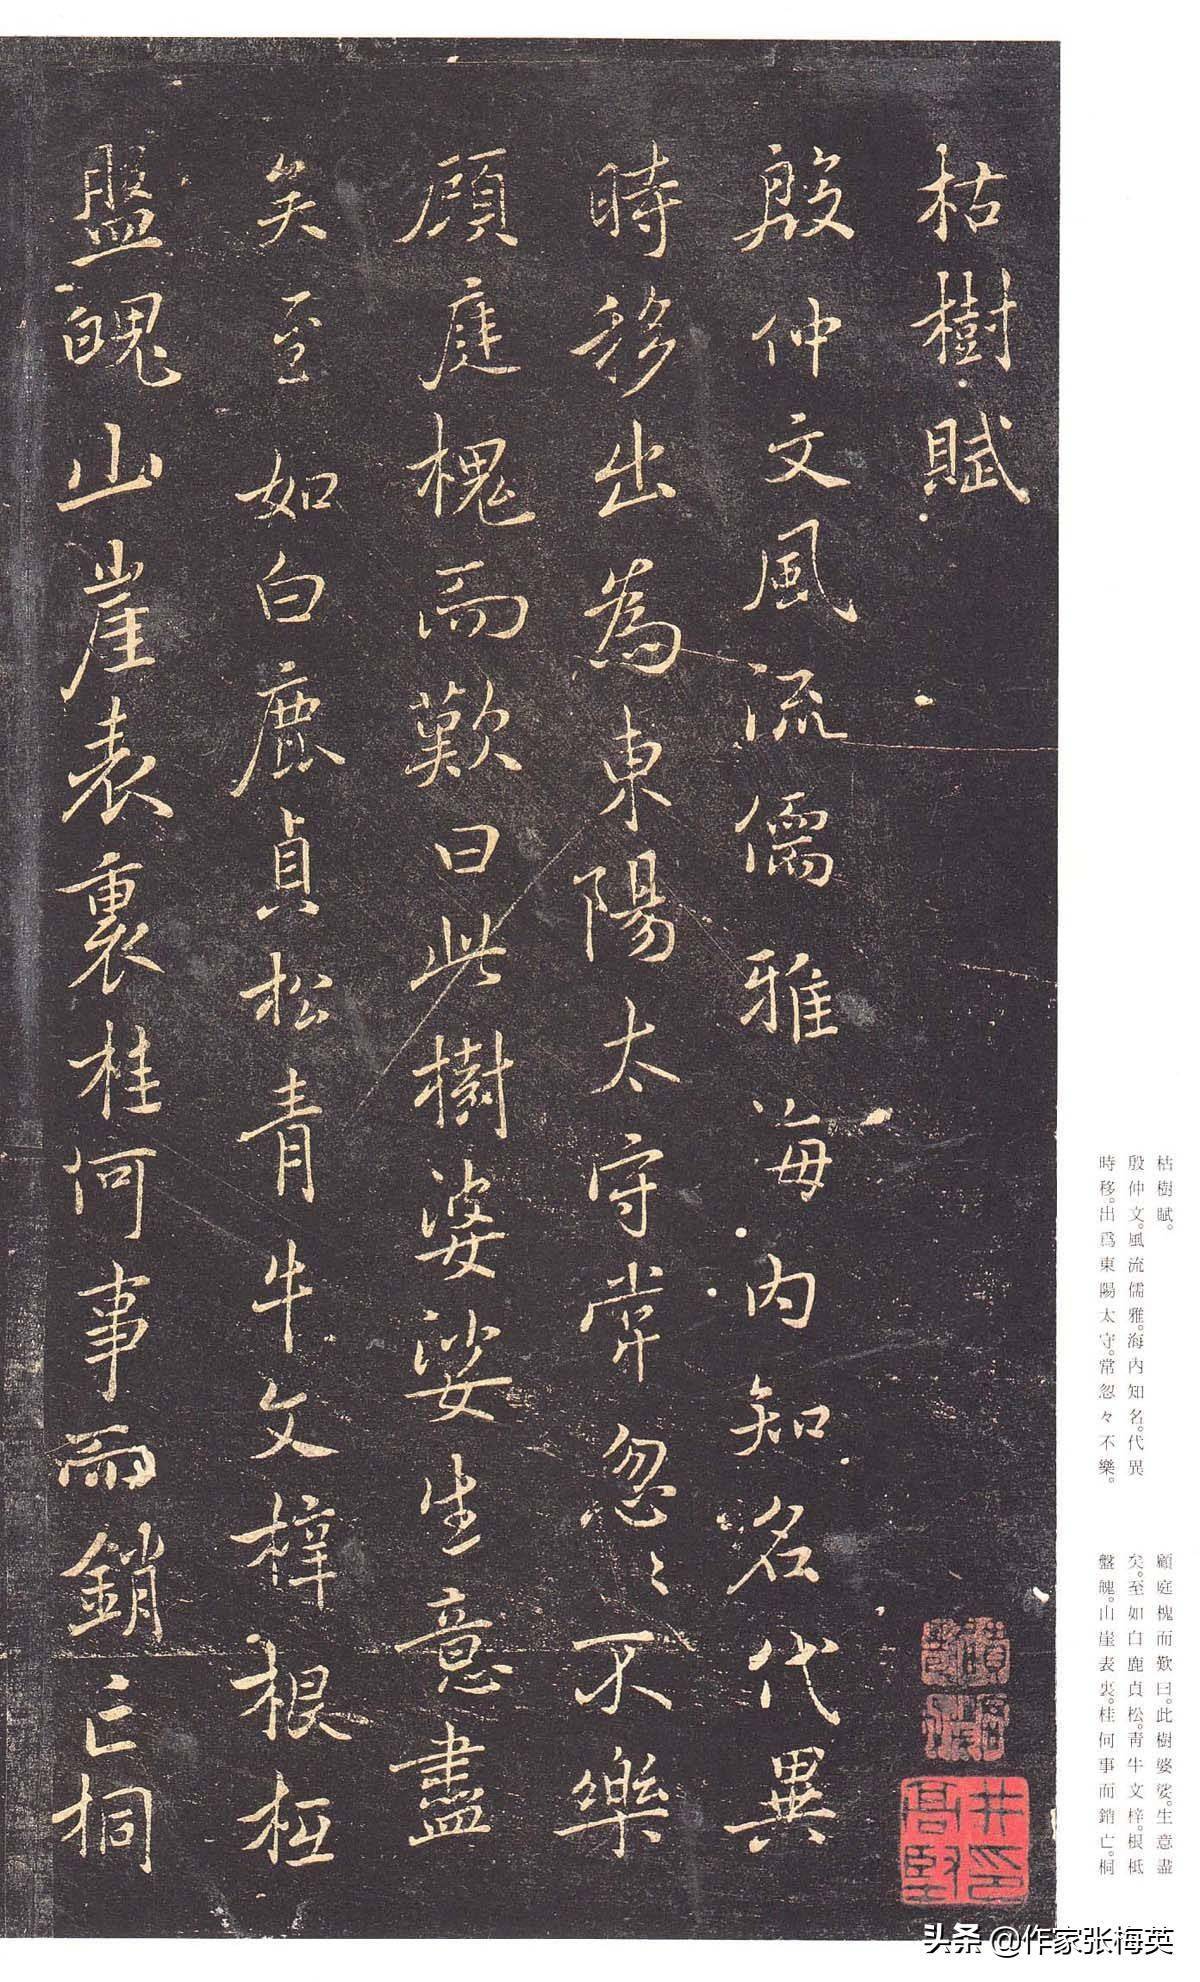 枯樹賦
殷仲文風流儒雅海內知名代異
時移出為東陽太守常忽〻不樂
顧庭槐而歎曰此樹婆娑生意盡
矣至如白鹿貞松青牛文梓根柢
盤魄山崖表裏桂何事而銷亡桐
枯樹賦。
殷仲文。風流儒雅。海內知名。代異
時移。出爲東陽太守。常忽々不樂。
顧庭槐而歎曰。此樹婆娑。生意盡
矣。至如白鹿貞松。靑牛文梓。根柢
盤魄。山崖表裏。桂何事而銷亡。桐
头条 @作家张梅英